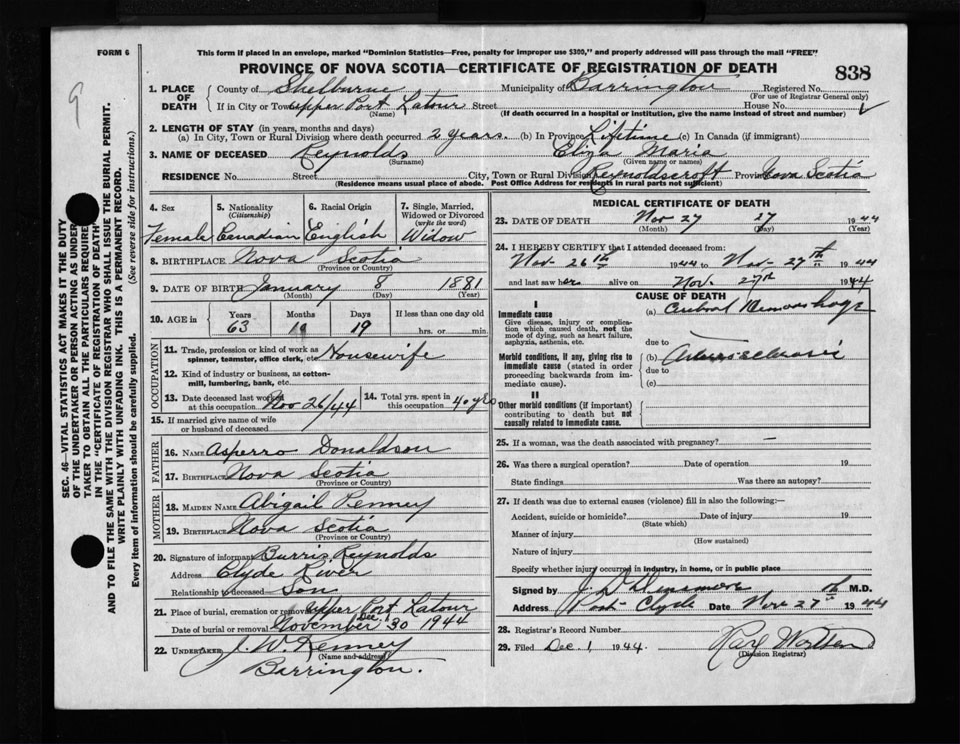 FORM 6
This form if placed in an envelope, marked "Dominion Statistics—Free, penalty for improper use $300," and properly addressed will pass through the mail "FREE"
PROVINCE OF NOVA SCOTIA—CERTIFICATE OF REGISTRATION OF DEATH
838
9
1. PLACE OF DEATH
County of Shelburne Municipality of Barrington Registered No.
(For use of Registrar General only)
If in City or Town Upper Port Latour Street House No.
(Name) (If death occurred in a hospital or institution, give the name instead of street and number)
2. LENGTH OF STAY (in years, months and days)
(a) In City, Town or Rural Division where death occurred 2 years. (b) In Province Lifetime (c) In Canada (if immigrant)
3. NAME OF DECEASED Reynolds Eliza Maria
(Surname) (Given name or names)
RESIDENCE No. Street City, Town or Rural Division Reynoldscroft Province Nova Scotia
(Residence means usual place of abode. Post Office Address for residents in rural parts not sufficient)
4. Sex
Female
5. Nationality
(Citizenship)
Canadian
6. Racial Origin
English
7. Single, Married, Widowed or Divorced
(write the word)
Widow
8. BIRTHPLACE Nova Scotia
(Province or Country)
9. DATE OF BIRTH January 8 1881
(Month) (Day) (Year)
10. AGE in
Years Months Days If less than one day old
63 19 hrs. or min.
OCCUPATION
11. Trade, profession or kind of work as spinner, teamster, office clerk, etc. Housewife
12. Kind of industry or business, as cotton-mill, lumbering, bank, etc.
13. Date deceased last worked at this occupation Nov 26/44
14. Total yrs. spent in this occupation 40 yrs
15. If married give name of wife or husband of deceased
FATHER
16. NAME Asperro Donaldson
17. BIRTHPLACE Nova Scotia
(Province or Country)
MOTHER
18. MAIDEN NAME Abigail Penney
19. BIRTHPLACE Nova Scotia
(Province or Country)
20. Signature of informant Burris Reynolds
Address Clyde River
Relationship to deceased Son
21. Place of burial, cremation or removal Upper Port Latour
Date of burial or removal November 30 1944
22. UNDERTAKER J. W. Kenney
(Name and address)
Barrington.
MEDICAL CERTIFICATE OF DEATH
23. DATE OF DEATH Nov 27 27 1944
(Month) (Day) (Year)
24. I HEREBY CERTIFY that I attended deceased from:
Nov. 26th 1944 to Nov. 27th 1944
and last saw her alive on Nov. 27th 1944
CAUSE OF DEATH
I
Immediate cause
Give disease, injury or complication which caused death, not the mode of dying, such as heart failure, asphyxia, asthenia, etc.
(a) Cerebral Hemorrhage
due to
Morbid conditions, if any, giving rise to immediate cause (stated in order proceeding backwards from immediate cause).
(b) Arteriosclerosis
due to
(c)
II
Other morbid conditions (if important) contributing to death but not causally related to immediate cause.
25. If a woman, was the death associated with pregnancy? —
26. Was there a surgical operation? Date of operation 19
State findings Was there an autopsy?
27. If death was due to external causes (violence) fill in also the following:—
Accident, suicide or homicide? Date of injury 19
(State which)
Manner of injury
(How sustained)
Nature of injury
Specify whether injury occurred in industry, in home, or in public place
Signed by J. D. Densmore M.D.
Address Port Clyde Date Nov 27th 1944
28. Registrar's Record Number
29. Filed Dec. 1 1944.
(Division Registrar)
SEC. 46—VITAL STATISTICS ACT MAKES IT THE DUTY
OF THE UNDERTAKER OR PERSON ACTING AS UNDER-
TAKER TO OBTAIN ALL THE PARTICULARS REQUIRED
IN THE "CERTIFICATE OF REGISTRATION OF DEATH"
AND TO FILE THE SAME WITH THE DIVISION REGISTRAR WHO SHALL ISSUE THE BURIAL PERMIT.
WRITE PLAINLY WITH UNFADING INK. THIS IS A PERMANENT RECORD.
Every item of information should be carefully supplied. (See reverse side for instructions.)